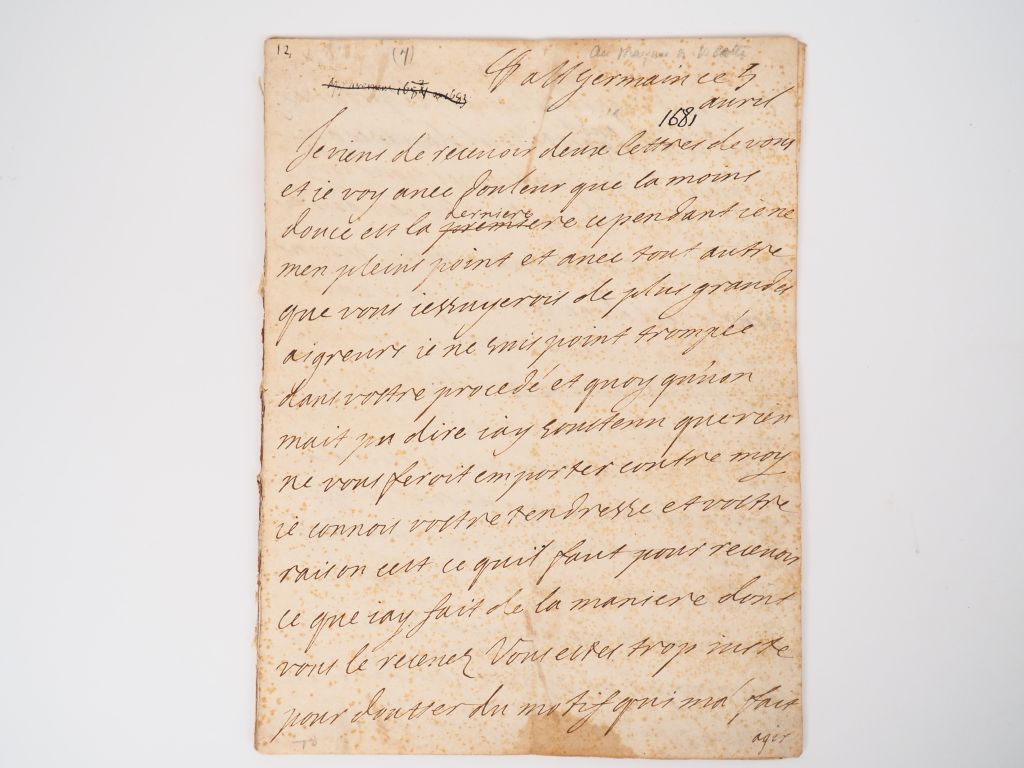 12
(7)
Au Marquis de Villette
A St germain ce 5
avril
1681
Je viens de recevoir deux lettres de vous
et ie voy avec douleur que la moins
douce est la derniere cependant ie ne
men pleins point et avec tout autre
que vous iessuyerois de plus grandes
aigreurs ie ne suis point trompée
dans vostre procedé et quoy qu'on
mait pu dire iay soustenu que rien
ne vous feroit emporter contre moy
ie connois vostre tendresse et vostre
raison cest ce quil faut pour recevoir
ce que iay fait de la maniere dont
vous le recevez Vous estes trop iuste
pour doutter du motif qui ma fait
agir